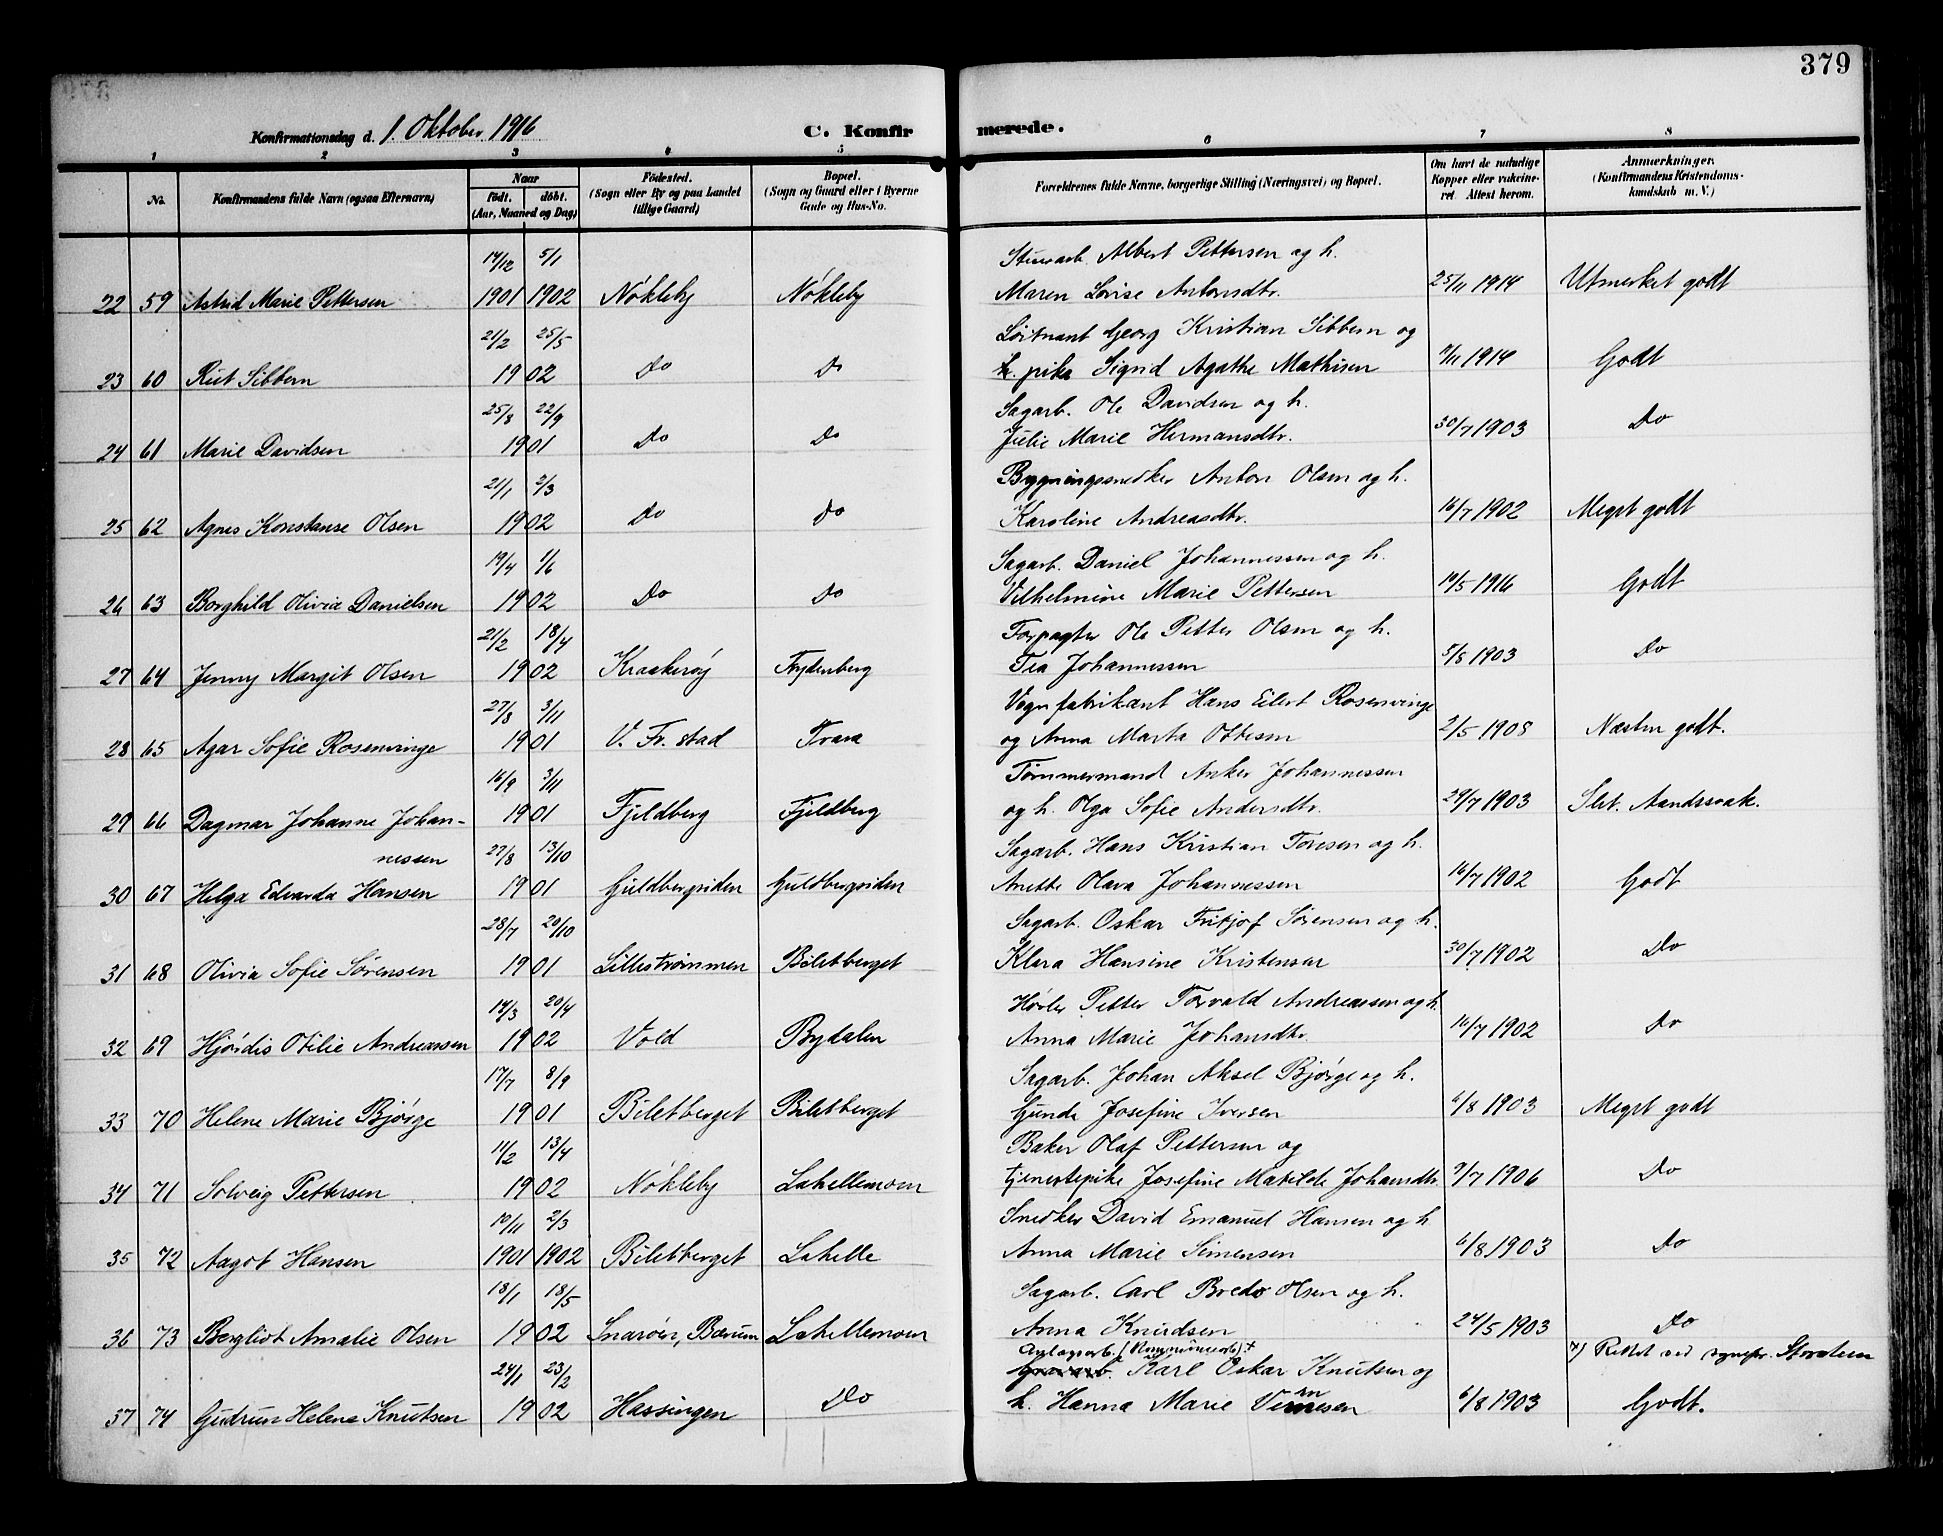 379
Konfirmationsdag d. 1. Oktober 1916 C. Konfirmerede.
1 2 3 4 5 6 7 8
No. Konfirmandens fulde Navn (ogsaa Efternavn) Naar født. døbt. (Aar, Maaned og Dag) Fødested. (Sogn eller By og paa Landet tillige Gaard) Bopæl. (Sogn og Gaard eller i Byerne Gade og Hus-No. Forældrenes fulde Navne, borgerlige Stilling (Næringsvei) og Bopæl. Om havt de naturlige Kopper eller vakcineret. Attest herom. Anmerkninger. (Konfirmandens Kristendomskundskab m. V.)
14/12 5/1 Stuerarb. Albert Pettersen og h.
22 59 Astrid Marie Pettersen 1901 1902 Nökleby Nökleby Maren Lovise Antonsdtr. 25/11 1914 Utmerket godt
21/2 25/5 Løitnant Georg Kristian Sibbern og
23 60 Rut Sibbern 1902 Do Do pike Sigrid Agathe Mathisen 7/11 1914 Godt
25/8 22/9 Sagarb. Ole Davidsen og h.
24 61 Marie Davidsen 1901 Do Do Julie Marie Hermansdtr. 30/7 1903 Do
21/1 2/3 Bygningssnedker Anton Olsen og h.
25 62 Agnes Konstanse Olsen 1902 Do Do Karoline Andreasdtr. 16/7 1902 Meget godt
19/4 1/6 Sagarb. Daniel Johannessen og h.
26 63 Borghild Olivia Danielsen 1902 Do Do Vilhelmine Marie Pettersen 19/5 1916 Godt
21/2 18/4 Forpagter Ole Petter Olsen og h.
27 64 Jenny Margit Olsen 1902 Kraakerøy Frydenberg Tea Johannessen 5/8 1903 Do
27/8 3/11 Vognfabrikant Hans Eilert Rosenvinge
28 65 Agar Sofie Rosenvinge 1901 V. Fr. stad Trara og Anna Marta Ottesen 2/5 1908 Næsten godt.
16/9 3/11 Tømmermand Anker Johannessen
29 66 Dagmar Johanne Johan- 1901 Fjeldberg Fjeldberg og h. Olga Sofie Andersdtr. 29/7 1903 Slet. Aandssvak.
nessen 27/8 13/10 Sagarb. Hans Kristian Toresen og h.
30 67 Helga Edvarda Hansen 1901 Guldbergsiden Guldbergsiden Anette Olava Johannessen 16/7 1902 Godt
28/7 20/10 Sagarb. Oskar Fritjof Sørensen og h.
31 68 Olivia Sofie Sørensen 1901 Lillestrømmen Biletberget Klara Hansine Kristensen 30/7 1902 Do
14/3 20/4 Høvler Petter Torvald Andreassen og h.
32 69 Hjørdis Otilie Andreassen 1902 Vold Bydalen Anna Marie Johansdtr. 16/7 1902 Do
17/7 8/9 Sagarb. Johan Aksel Bjørge og h.
33 70 Helene Marie Bjørge 1901 Biletberget Biletberget Gunda Josefine Iversen 6/8 1903 Meget godt
11/2 13/4 Baker Olaf Pettersen og
34 71 Solveig Pettersen 1902 Nökleby Lahellemoen tjenestepike Josefine Matilde Johansdtr. 9/7 1906 Do
10/11 2/3 Snedker David Emanuel Hansen og h
35 72 Aagot Hansen 1901 1902 Biletberget Lahelle Anna Marie Simensen 6/8 1903 Do
18/1 18/5 Sagarb. Carl Bredo Olsen og h.
36 73 Bergliot Amalie Olsen 1902 Snarøen, Bærum Lahellemoen Anna Knudsen 24/5 1903 Do
Anlægsarb. (Kommunearb.) + +) Rettet ved sognepr. Storsteen
24/1 23/2 Karl Oskar Knutsen og
37 74 Gudrun Helene Knutsen 1902 Hassingen Do h. Hanna Marie 6/8 1903 Godt.